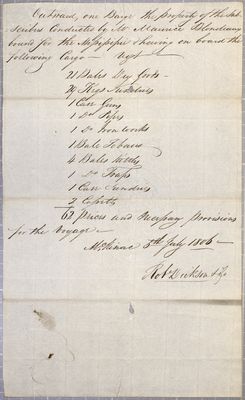 Outward, one Barge the Property of the Sub
scribers Conducted by Mr Maurice Blondeau
bound for the Mississippi having on board the
following Cargo — Vizt
21 Bales Dry Goods —
29 Kegs
1 Case Guns
1 Do Pipes
1 Do Iron works
1 Bale Tobacco
4 Bales Kettles
1 Do Traps
1 Case Sundries
2 Coffers
63 Pieces and Necessary Provisions
for the Voyage —
McKinac 5th July 1806 —
Robt Dickson & Co